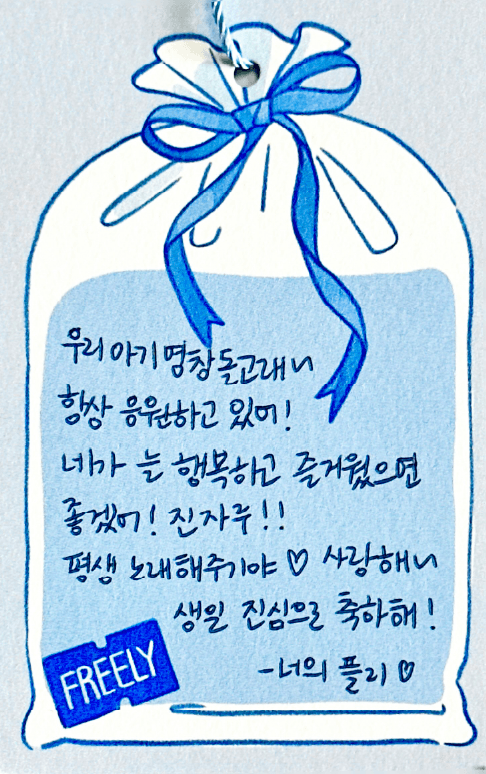 우리 아기 명창 돌고래니
항상 응원하고 있어!
네가 늘 행복하고 즐거웠으면
좋겠어! 진자루!!
평생 노래해주기야 ♡ 사랑해니
생일 진심으로 축하해!
FREELY
-너의 플리♡